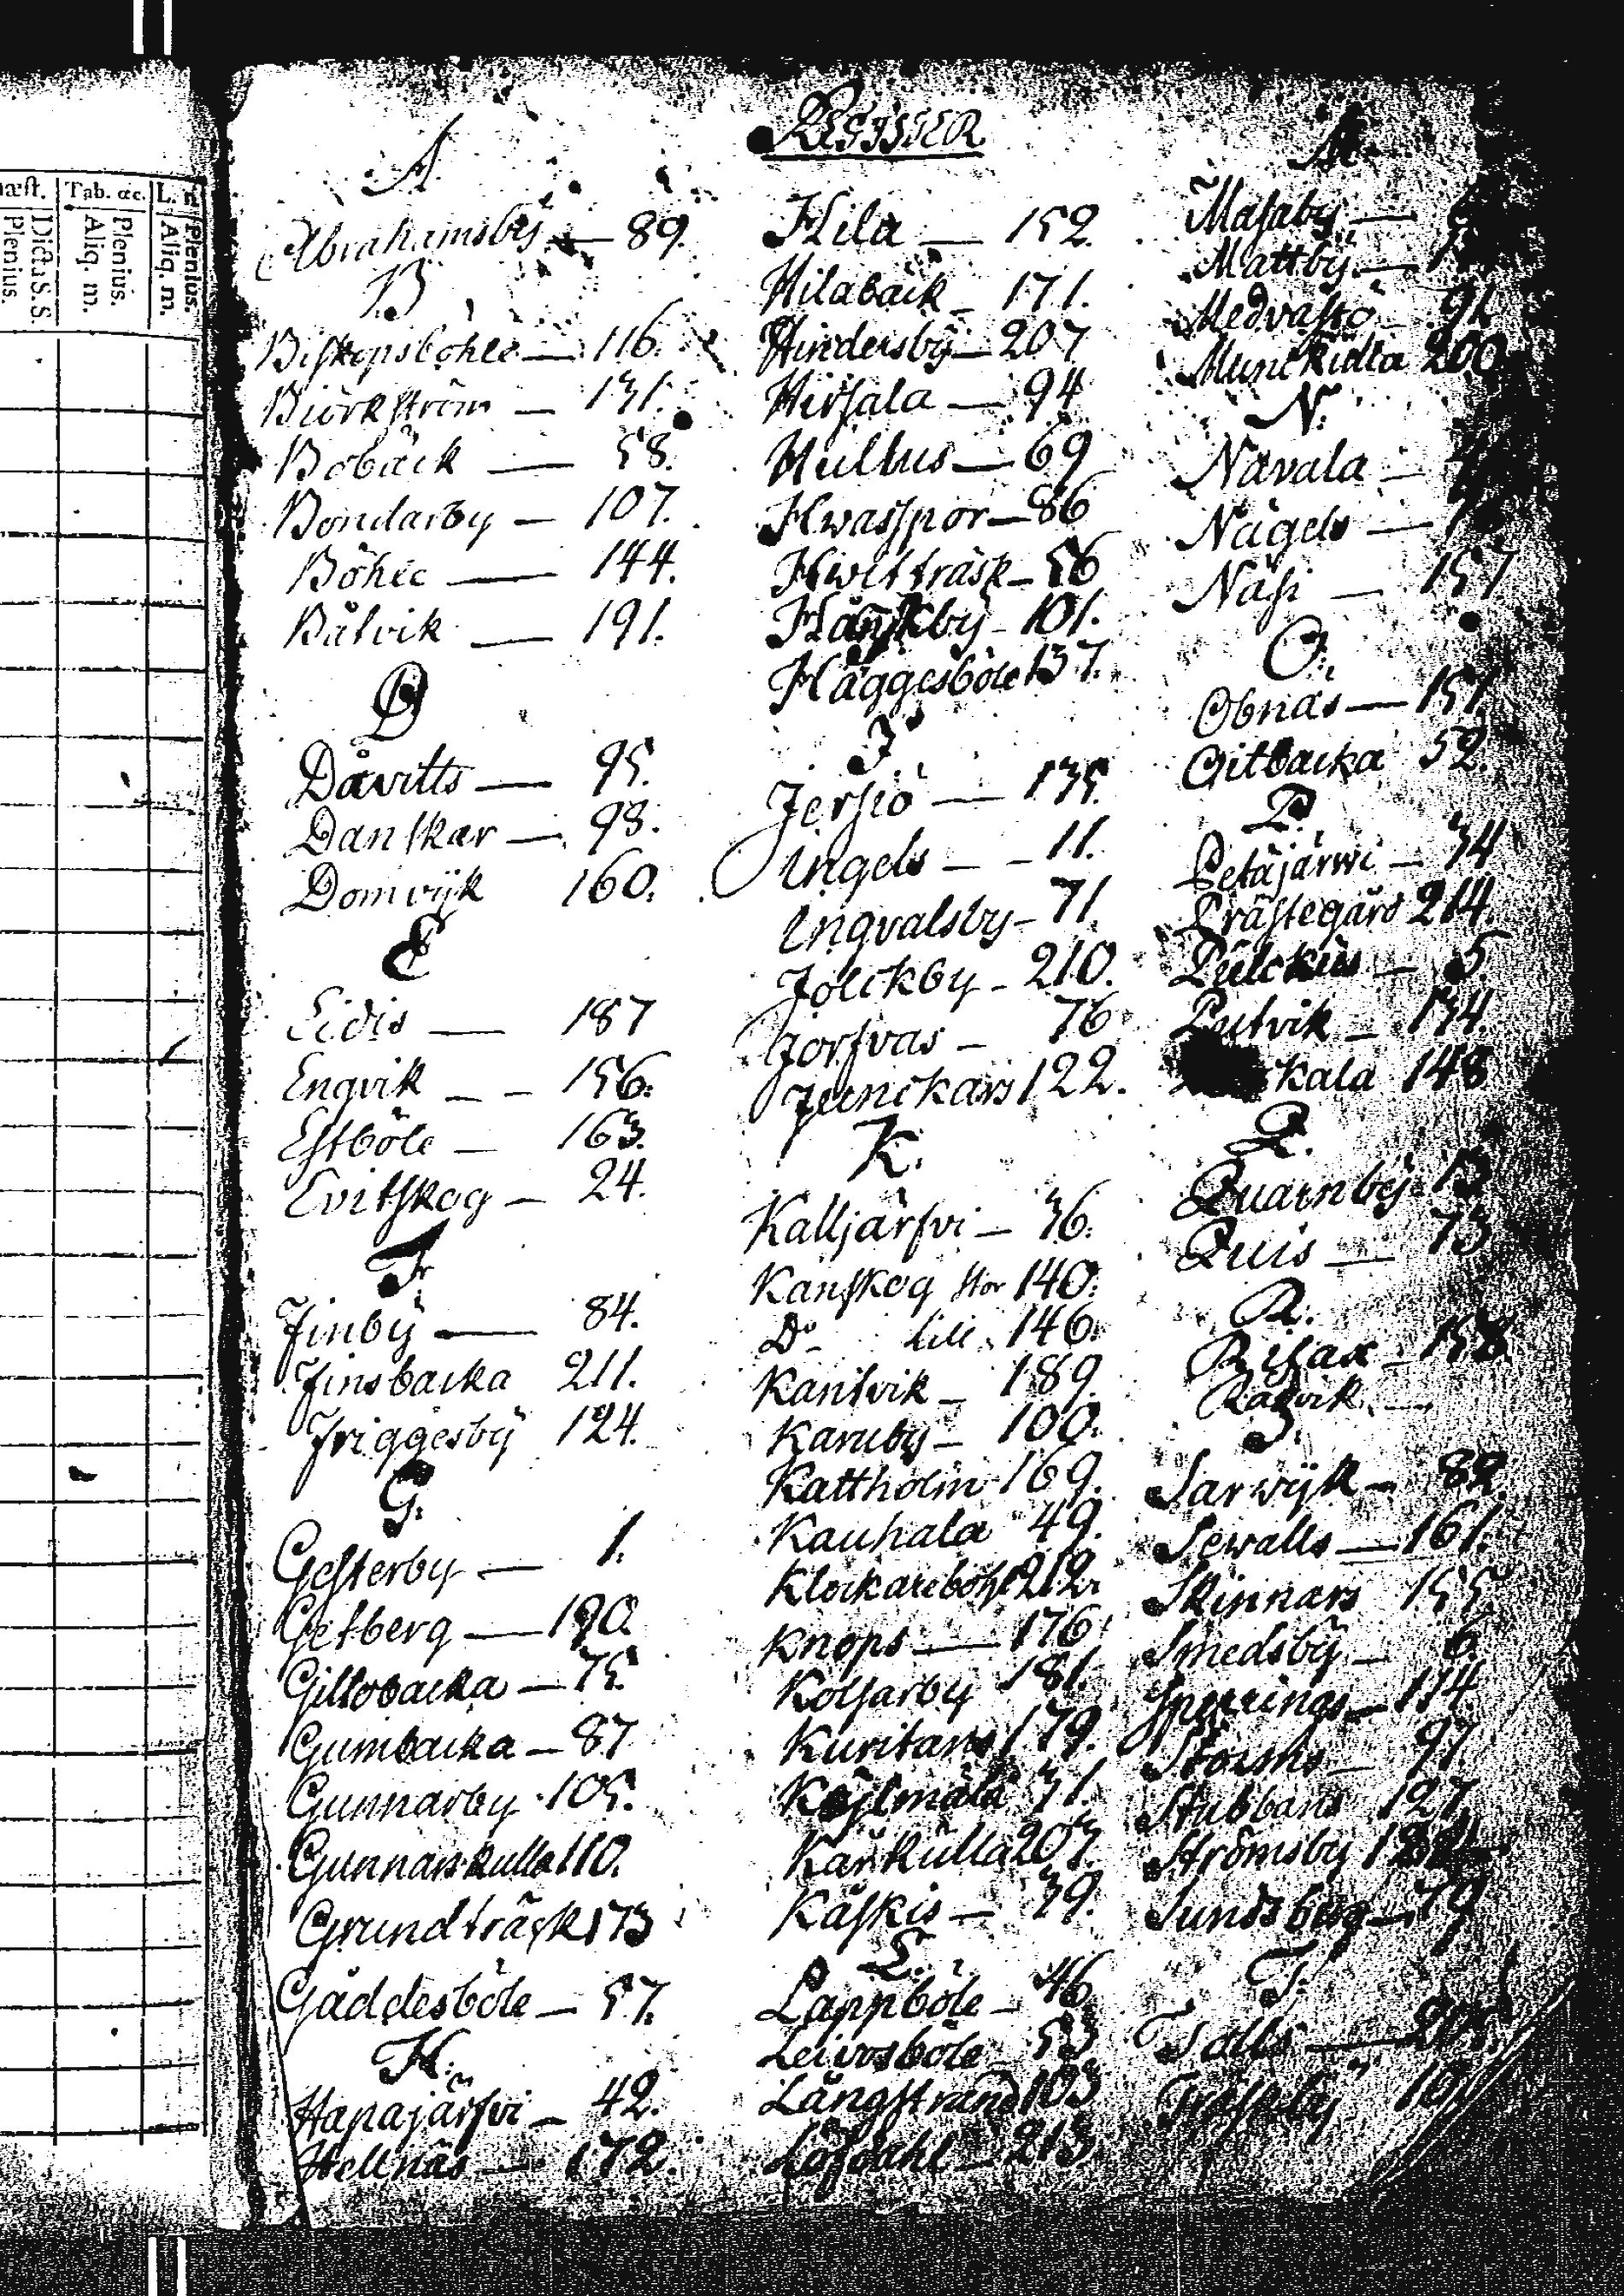 næst. Tab. &c. L. n
Dicta S. S.
Plenius.
Plenius.
Aliq. m.
Plenius.
Aliq. m.
REGISTER
A.
Abrahamsby — 89.
B
Biskopsböhle — 116.
Biörkström — 131.
Bobäck — 58.
Bondarby — 107.
Böhle — 144.
Båtvik — 191.
D
Dåvitts — 95.
Danskar — 98.
Domvijk 160.
E
Eidis — 187
Engvik — 156.
Estböle — 163.
Evitskog — 24.
F
Finby — 84.
Finsbacka 211.
Friggesby 124.
G.
Gesterby — 1.
Getberg — 190.
Gillobacka — 75.
Gumbacka — 87
Gunnarby 105.
Gunnarskulla 110.
Grundträsk 173
Gäddesböle — 57.
H.
Hapajärfvi — 42.
Hellnäs — 172.
Hila — 152.
Hilabäck — 171.
Hindersby — 207
Hirsala — 94
Hullus — 69
Hwasspor — 86
Hwitträsk — 56
Hänskby — 101.
Häggesböle 137.
J
Jersiö — 135.
Ingels — 11.
Ingvalsby — 71.
Jolckby — 210.
Jorfvas — 76
Junckars 122.
K.
Kalljärfvi — 36.
Kanskog stor 140.
Do lill 146.
Kantvik — 189.
Karuby — 100.
Kattholm 169.
Kauhala 49.
Klockareböhle 212.
Knops — 176
Kolsarby 181.
Kuritans 179.
Kylmälä 31.
Kärkulla 207.
Käskis — 39.
L.
Lappböle — 46
Leivosböle 53
Långstrand 103
Löfdahl — 213
M.
Masaby —
Mattby —
Medvastö — 91
Munckulla 200
N.
Navala —
Nägels —
Näsi — 157
O.
Obnäs — 151.
Oitbacka 52.
P.
Petäjärwi — 34
Prästegård 214.
Pulckus — 5
Putvik — 134.
kala 148
Q.
Quarnby 13
Quis — 73
R.
Risax — 158.
Ragvik —
S.
Sarwijk — 82
Sewalls — 161.
Skinnars 155.
Smedsby — 6.
Sperrings — 114
Storms — 97
Stubbans 127.
Strömsby
Sundsberg — 79
T.
Tolls —
Träskby 10